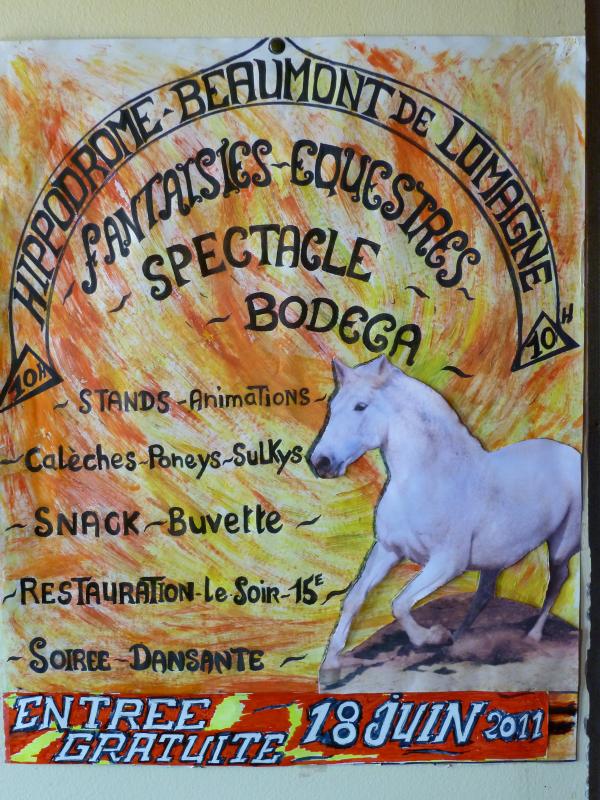 HIPPODROME-BEAUMONT DE LOMAGNE
FANTAISIES-EQUESTRES
SPECTACLE
BODEGA
10H
10H
STANDS-AnimaTIONS
Calèches-Poneys-SulKys
SNACK-Buvette
RESTAURATION-Le-Soir-15E
SOIREE-DANSANTE
ENTREE GRATUITE
18 JUIN 2011